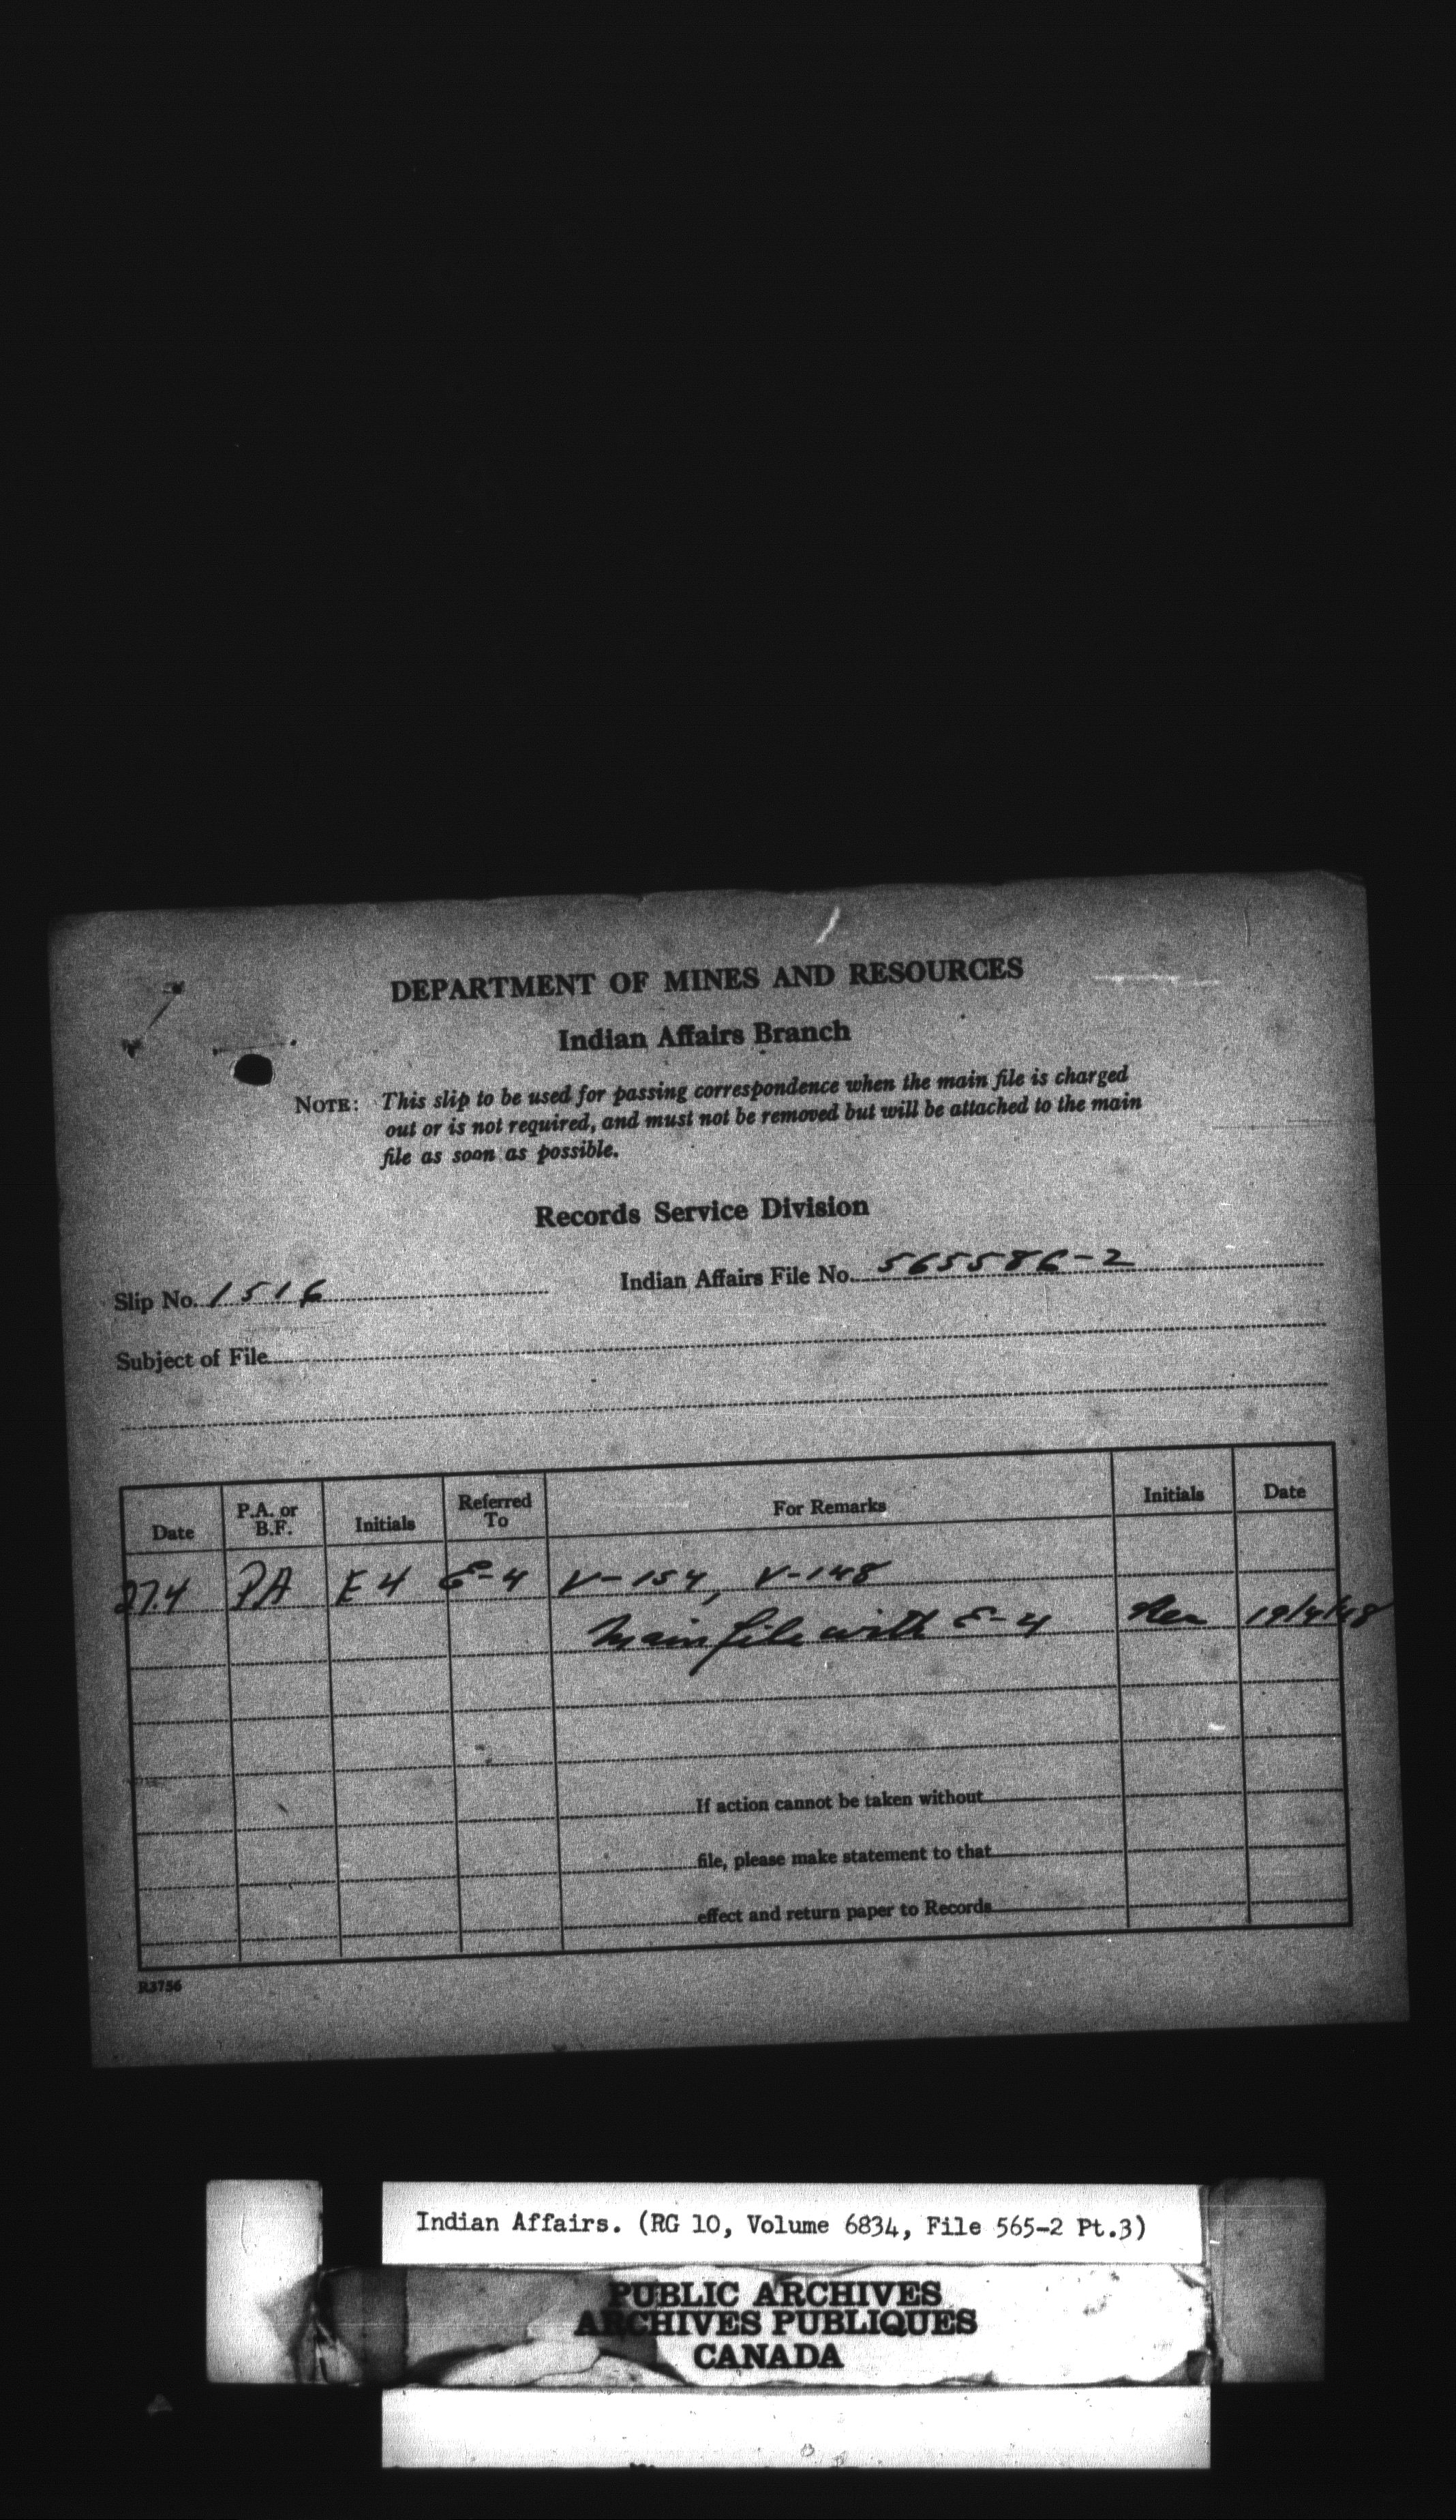 DEPARTMENT OF MINES AND RESOURCES
Indian Affairs Branch
NOTE: This slip to be used for passing correspondence when the main file is charged
out or is not required, and must not be removed but will be attached to the main
file as soon as possible.
Records Service Division
Slip No. 1516 Indian Affairs File No. 565586-2
Subject of File
Date P.A. or B.F. Initials Referred To For Remarks Initials Date
27.4 PA E4 E-4 V-154, V-148
Main file with E-4 19/4/48
If action cannot be taken without
file, please make statement to that
effect and return paper to Records
R3756
Indian Affairs. (RG 10, Volume 6834, File 565-2 Pt.3)
PUBLIC ARCHIVES
ARCHIVES PUBLIQUES
CANADA